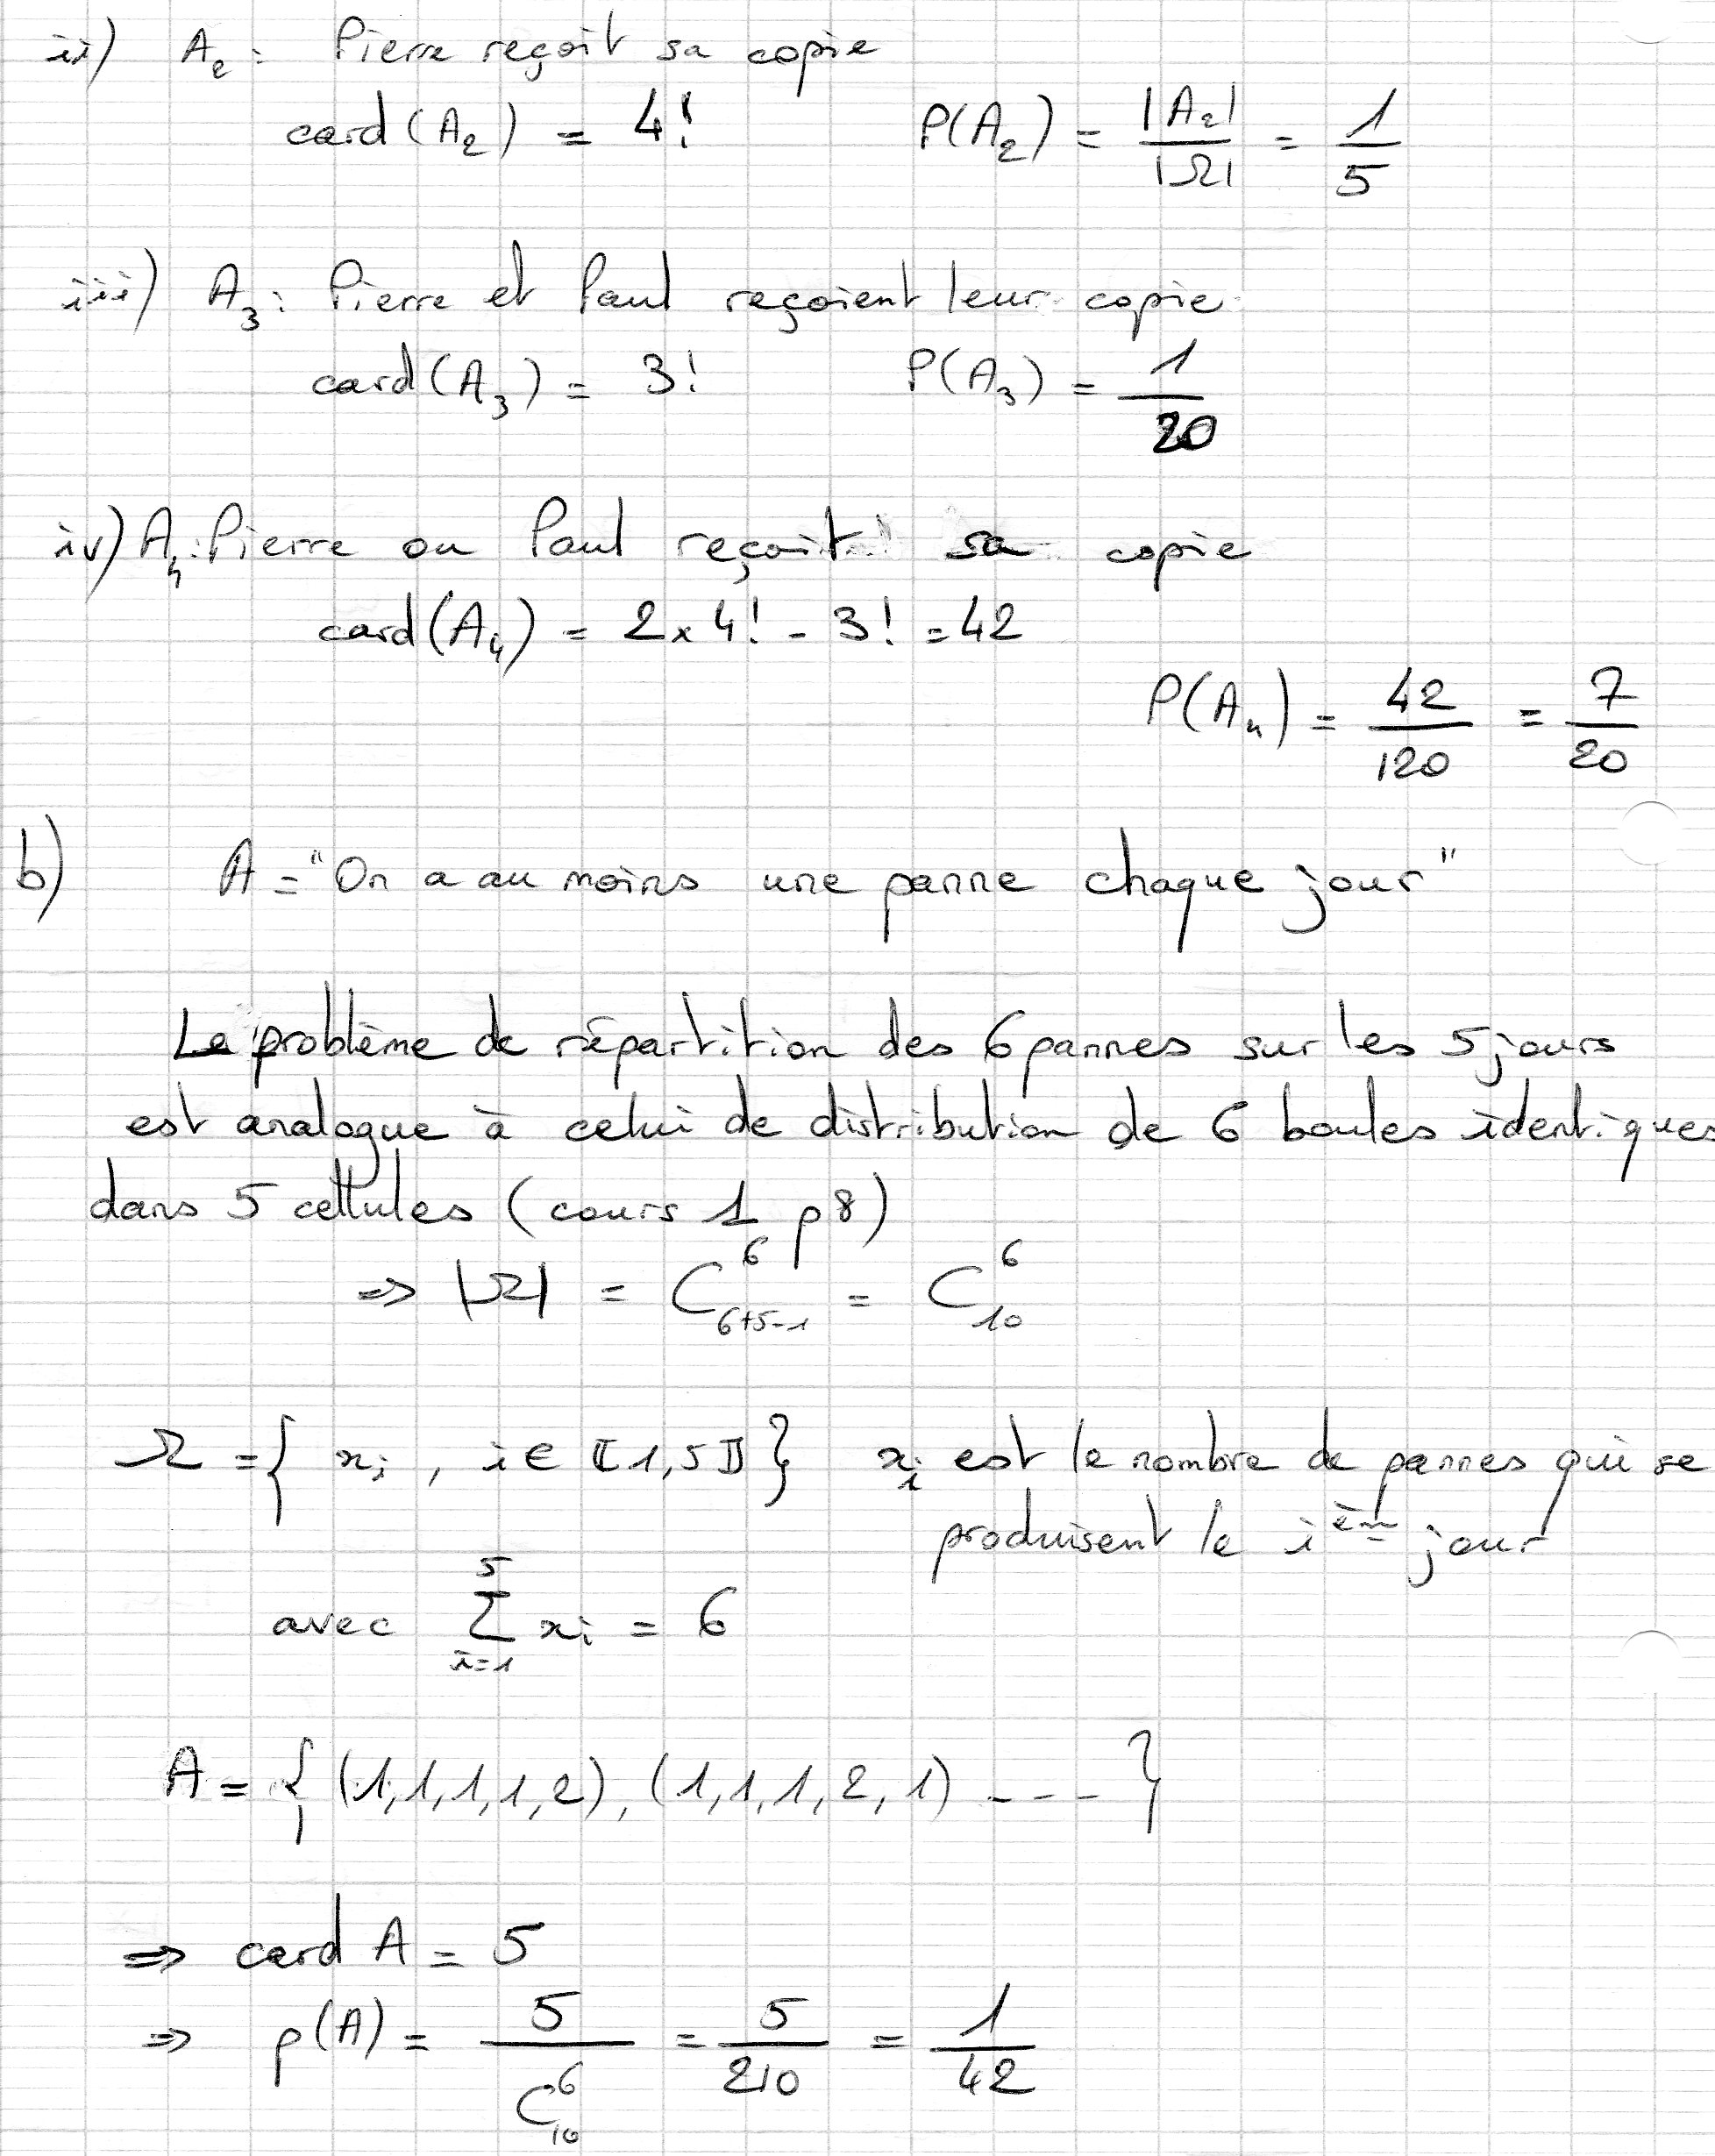 ii) A₂ : Pierre reçoit sa copie
card(A₂) = 4! P(A₂) = |A₂| / |Ω| = 1/5
iii) A₃ : Pierre et Paul reçoivent leur copie
card(A₃) = 3! P(A₃) = 1/20
iv) A₄ : Pierre ou Paul reçoit sa copie
card(A₄) = 2 x 4! - 3! = 42
P(A₄) = 42/120 = 7/20
b) A = "On a au moins une panne chaque jour"
Le problème de répartition des 6 pannes sur les 5 jours
est analogue à celui de distribution de 6 boules identiques
dans 5 cellules (cours 1 p8)
=> |Ω| = C⁶₆₊₅₋₁ = C⁶₁₀
Ω = { xᵢ , i ∈ ⟦1,5⟧ } xᵢ est le nombre de pannes qui se
produisent le i ème jour
avec Σ⁵ᵢ₌₁ xᵢ = 6
A = { (1,1,1,1,2), (1,1,1,2,1) - - - }
=> card A = 5
=> p(A) = 5 / C⁶₁₀ = 5/210 = 1/42